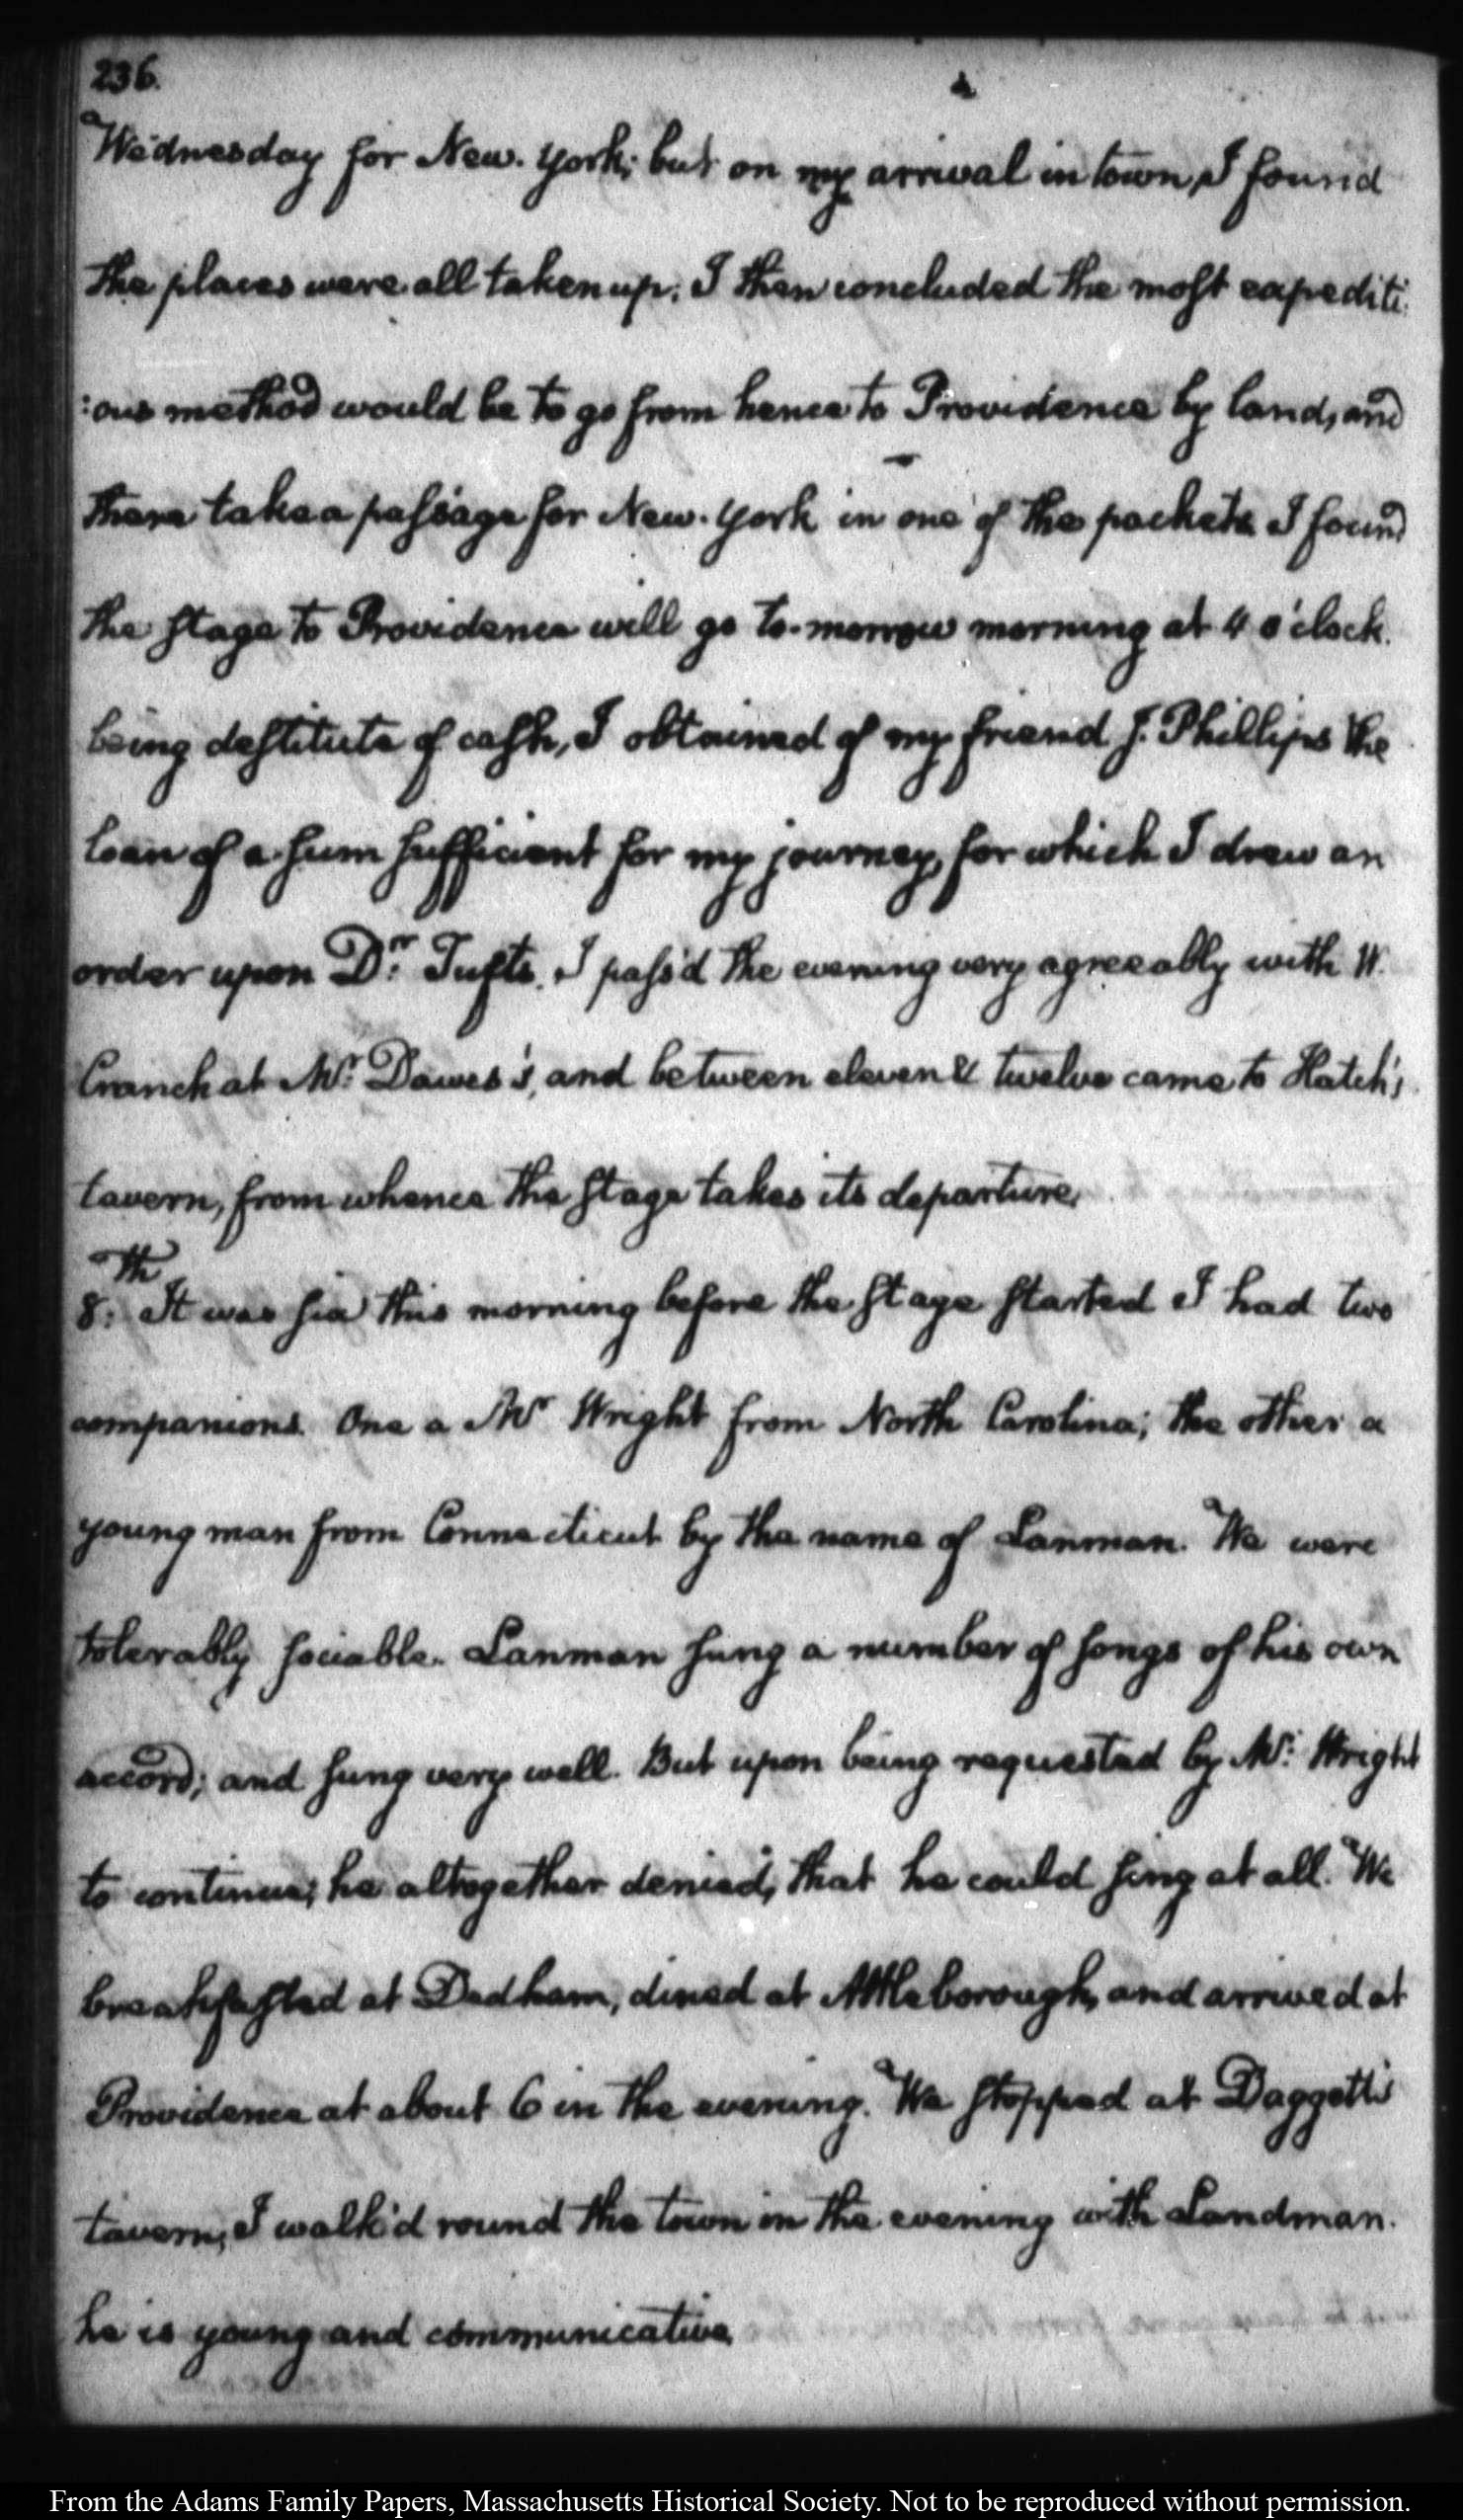 236.
Wednesday for New-York; but on my arrival in town, I found
the places were all taken up. I then concluded the most expediti:
:ous method would be to go from hence to Providence by land, and
there take a passage for New-York in one of the packets. I found
the stage to Providence will go to-morrow morning at 4 o'clock.
being destitute of cash, I obtained of my friend J. Phillips the
loan of a sum sufficient for my journey, for which I drew an
order upon Dr. Tufts. I pass'd the evening very agreeably with W.
Cranch at Mr. Dawes's, and between eleven & twelve came to Hatch's
tavern, from whence the stage takes its departure.
8th. It was six this morning before the stage started I had two
companions. One a Mr Wright from North Carolina; the other a
young man from Connecticut by the name of Lanman. We were
tolerably sociable. Lanman sung a number of songs of his own
accord; and sung very well. But upon being requested by Mr. Wright
to continue; he altogether denied, that he could sing at all. We
breakfasted at Dedham, dined at Attleborough, and arrived at
Providence at about 6 in the evening. We stopped at Daggett's
tavern; I walk'd round the town in the evening with Landman.
he is young and communicative.
From the Adams Family Papers, Massachusetts Historical Society. Not to be reproduced without permission.